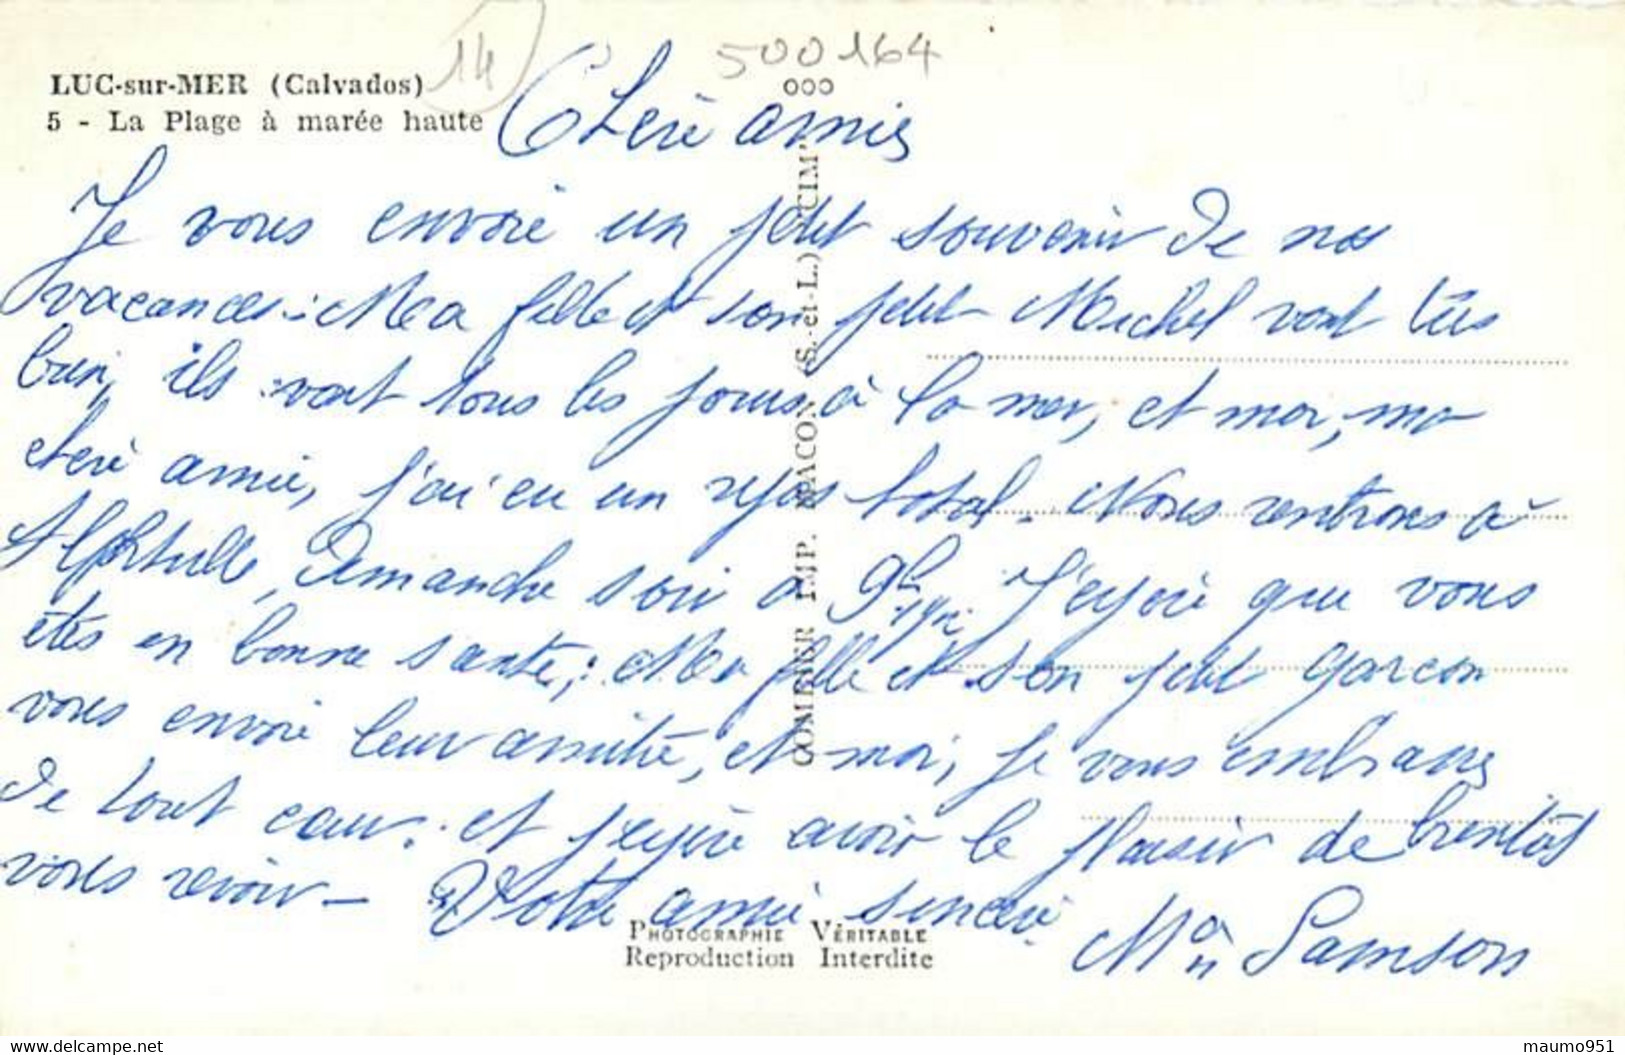 14
500164
LUC-sur-MER (Calvados)
5 - La Plage à marée haute
ooo
Chère amie
Je vous envoie un petit souvenir de nos
vacances. Ma fille et son petit Michel vont très
bien, ils vont tous les jours à la mer, et moi, ma
chère amie, j'ai eu un repos total. Nous rentrons à
Dimanche soir à 9h J'espère que vous
êtes en bonne santé, Ma fille et son petit garcon
vous envoie leur amitié, et moi, je vous embrasse
de tout cœur. et j'espère avoir le plaisir de bientôt
vous revoir - Votre amie sincère
Samson
COMBIER IMP. MACON (S.-et-L.) "CIM"
PHOTOGRAPHIE VÉRITABLE
Reproduction Interdite
www.delcampe.net
maumo951